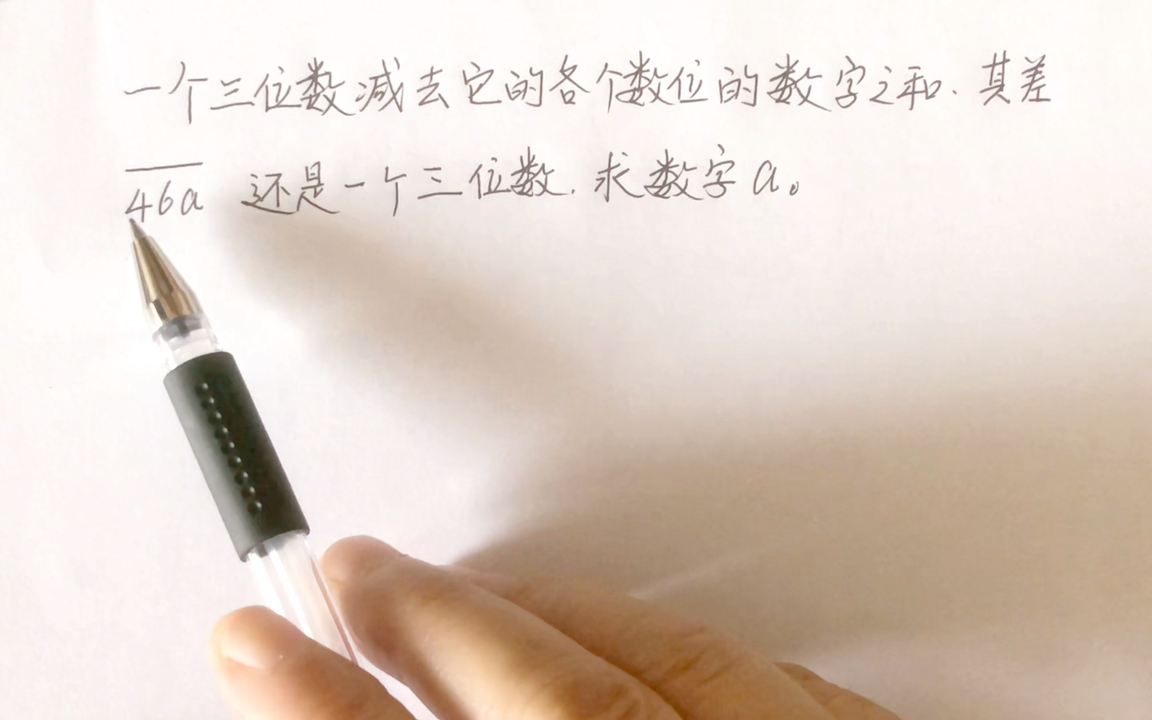 一个三位数减去它的各个数位的数字之和.其差
46a 还是一个三位数.求数字a。